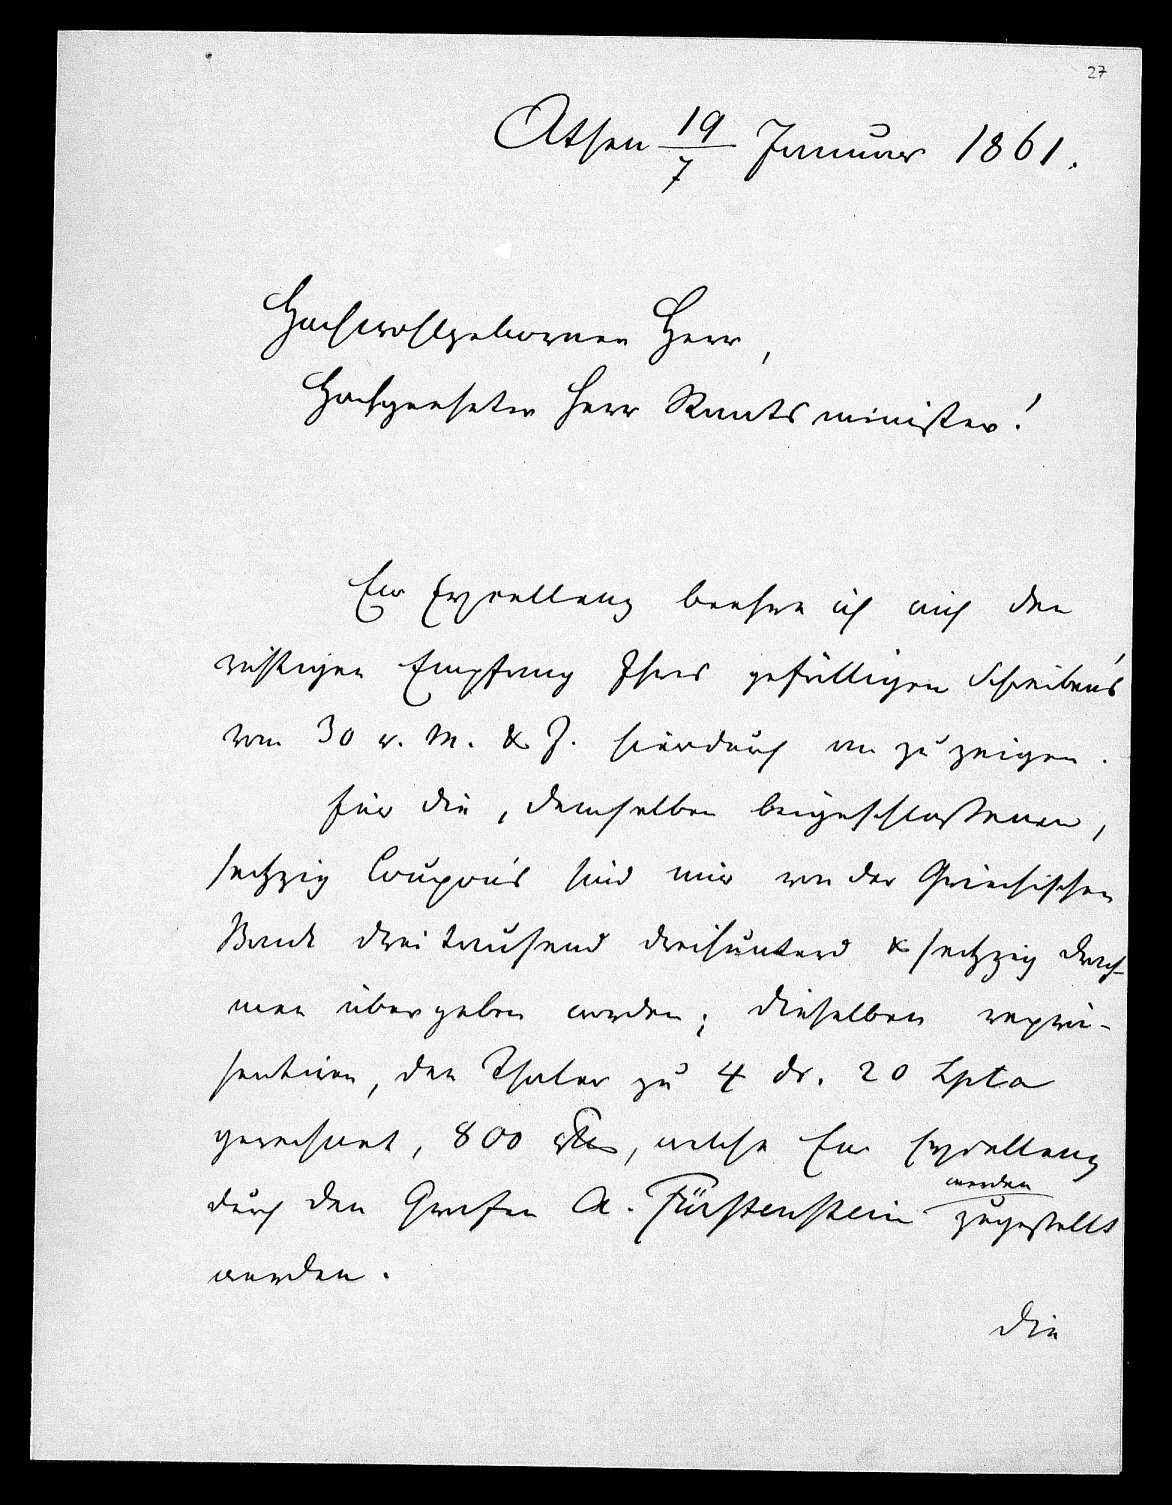 27
Athen 19/7 Januar 1861.
Hochwohlgeborner Herr,
Hochgeehrter Herr Staatsminister!
Ew Excellenz beehre ich mich den
richtigen Empfang Ihres gefälligen Schreiben's
vom 30 v. M. & J. hierdurch an zu zeigen.
Für die, demselben beigeschlossenen,
sechzig Coupons sind mir von der Griechischen
Bank dreitausend dreihundert & sechzig Drach-
men übergeben worden; dieselben reprä-
sentiren, den Thaler zu 4 dr. 20 Lpta
gerechnet, 800 rth, welche Ew Excellenz
durch den Grafen A. Fürstenstein zugestellt
werden
werden.
Die